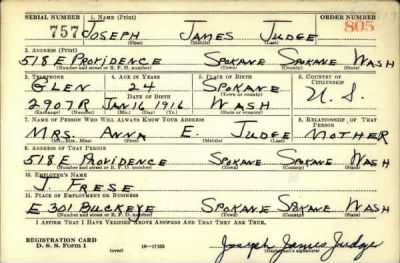 SERIAL NUMBER 1. NAME (Print) ORDER NUMBER
757 JOSEPH JAMES JUDGE 805
(First) (Middle) (Last)
2. ADDRESS (Print)
518 E PROVIDENCE SPOKANE SPOKANE WASH
(Number and street or R. F. D. number) (Town) (County) (State)
3. TELEPHONE 4. AGE IN YEARS 5. PLACE OF BIRTH 6. COUNTRY OF CITIZENSHIP
GLEN 24 SPOKANE
DATE OF BIRTH (Town or county) U. S.
2907R JAN 16 1916 WASH
7. NAME OF PERSON WHO WILL ALWAYS KNOW YOUR ADDRESS 8. RELATIONSHIP OF THAT PERSON
MRS. ANNA E. JUDGE MOTHER
(Mr., Mrs., Miss) (First) (Middle) (Last)
9. ADDRESS OF THAT PERSON
518 E PROVIDENCE SPOKANE SPOKANE WASH
(Number and street or R. F. D. number) (Town) (County) (State)
10. EMPLOYER'S NAME
J. FRESE
11. PLACE OF EMPLOYMENT OR BUSINESS
E 301 BUCKEYE SPOKANE SPOKANE WASH
(Number and street or R. F. D. number) (Town) (County) (State)
I AFFIRM THAT I HAVE VERIFIED ABOVE ANSWERS AND THAT THEY ARE TRUE.
REGISTRATION CARD
D. S. S. Form 1 (over) 16-17105 Joseph James Judge
(Registrant's signature)